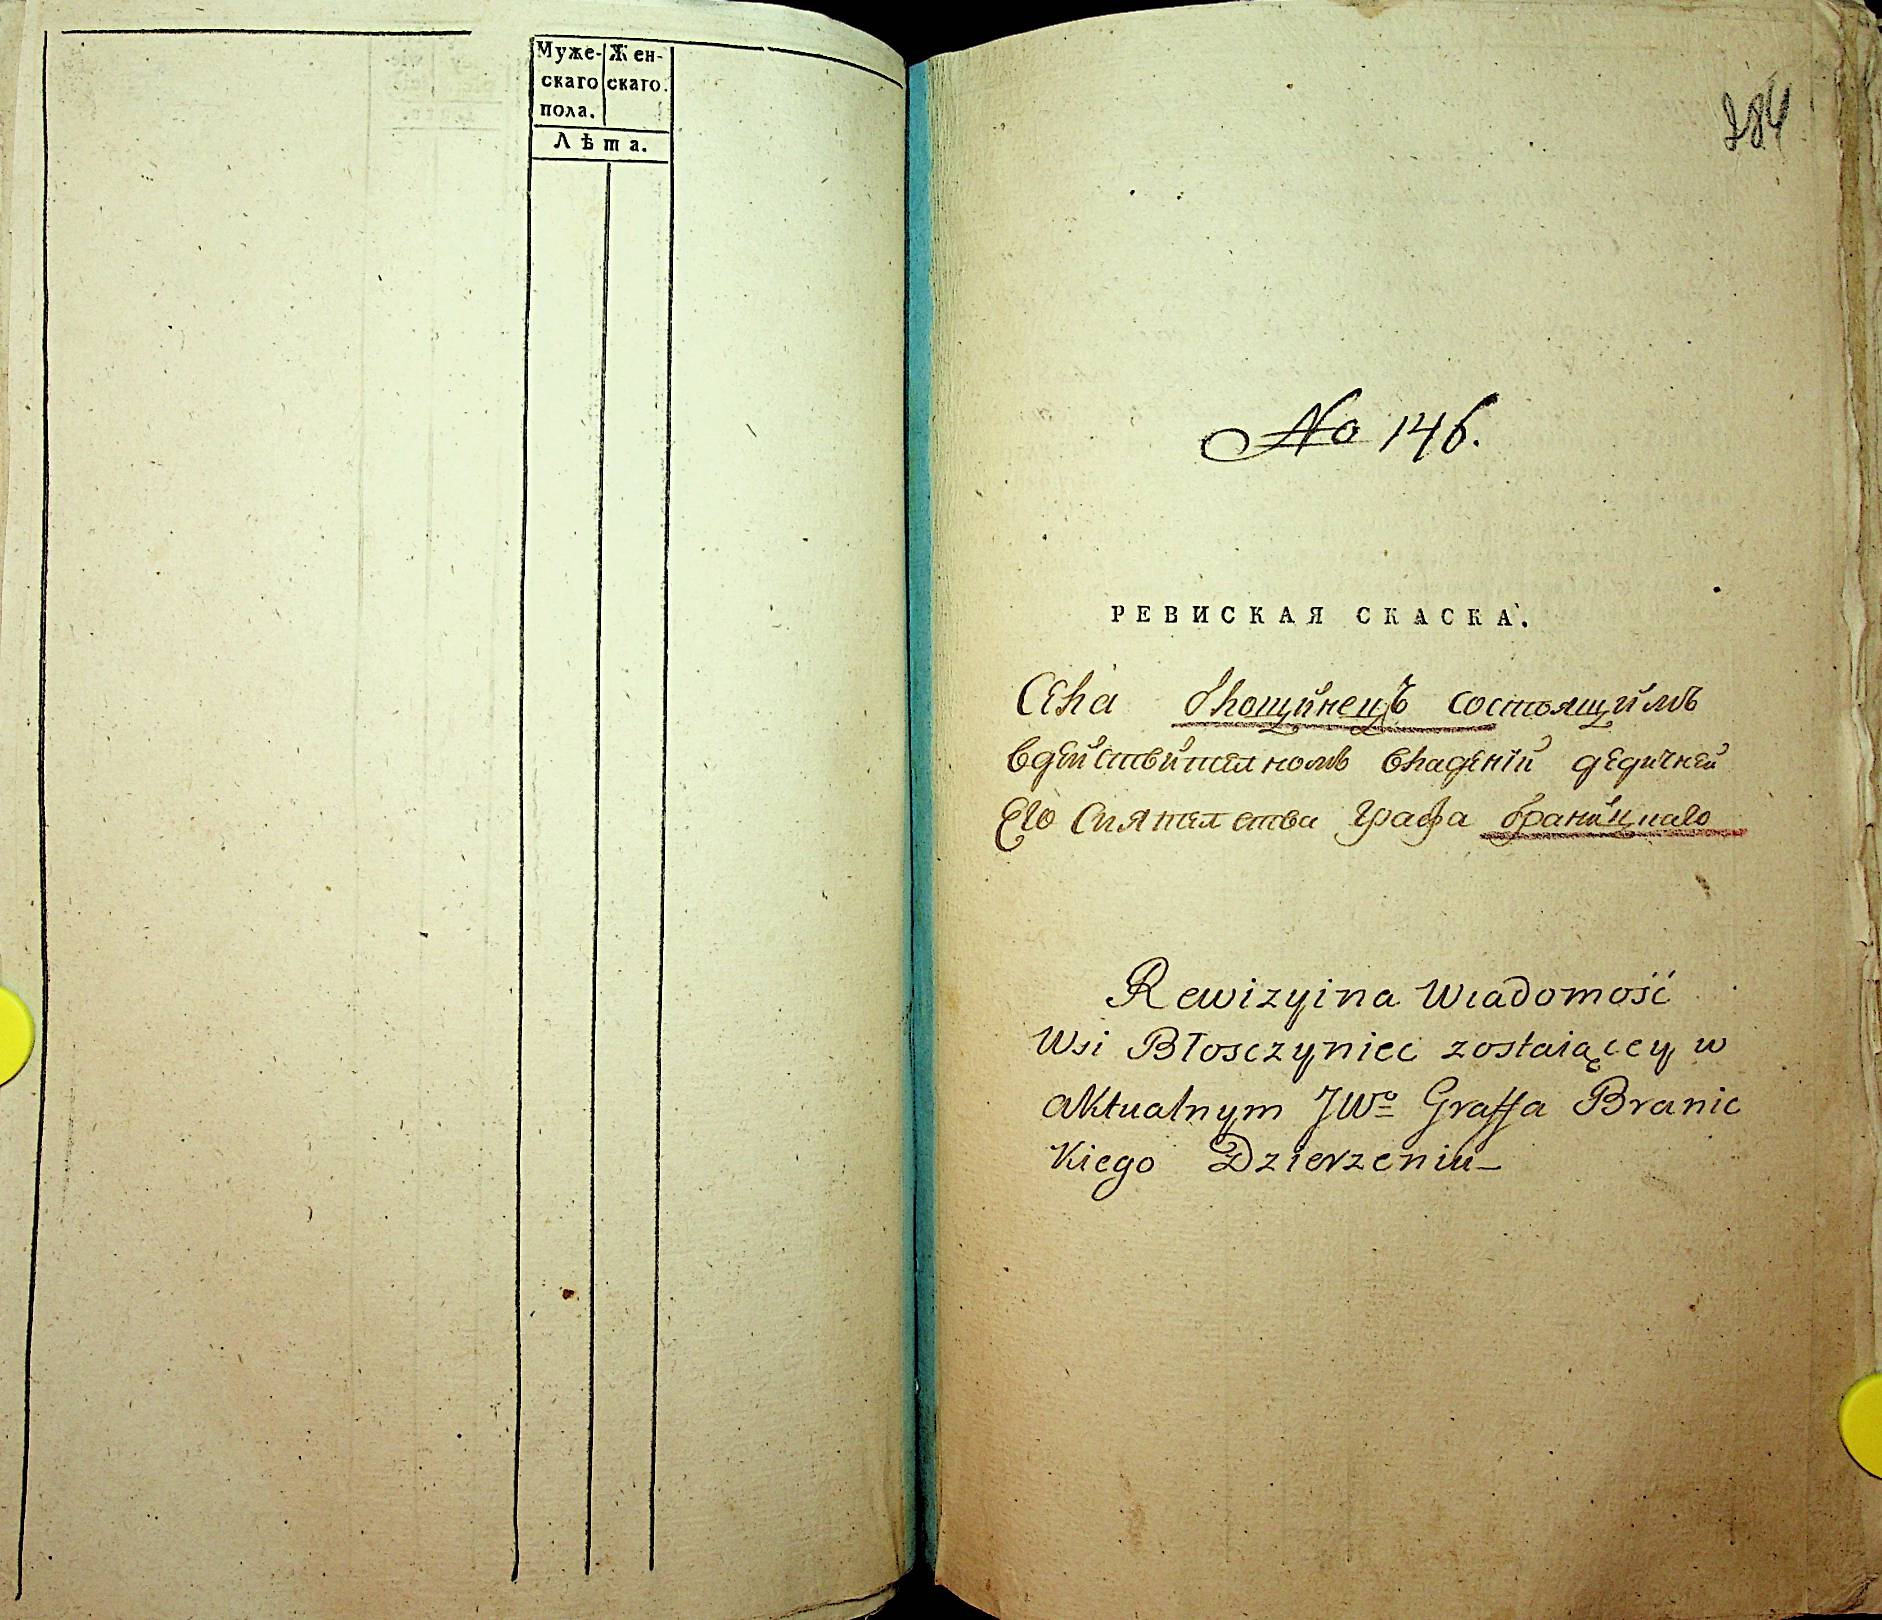 Муже- Жен-
скаго скаго.
пола.
Лѣта.
284
No 146.
РЕВИСКАЯ СКАСКА.
Села Блощинецъ состоящимъ
вдействителномъ владений дедичней
Его Сиятелства графа
Rewizyina Wiadomość
Wsi Błosczyniec zostaiącey w
aktualnym JWo Graffa Branic
kiego Dzierzeniu